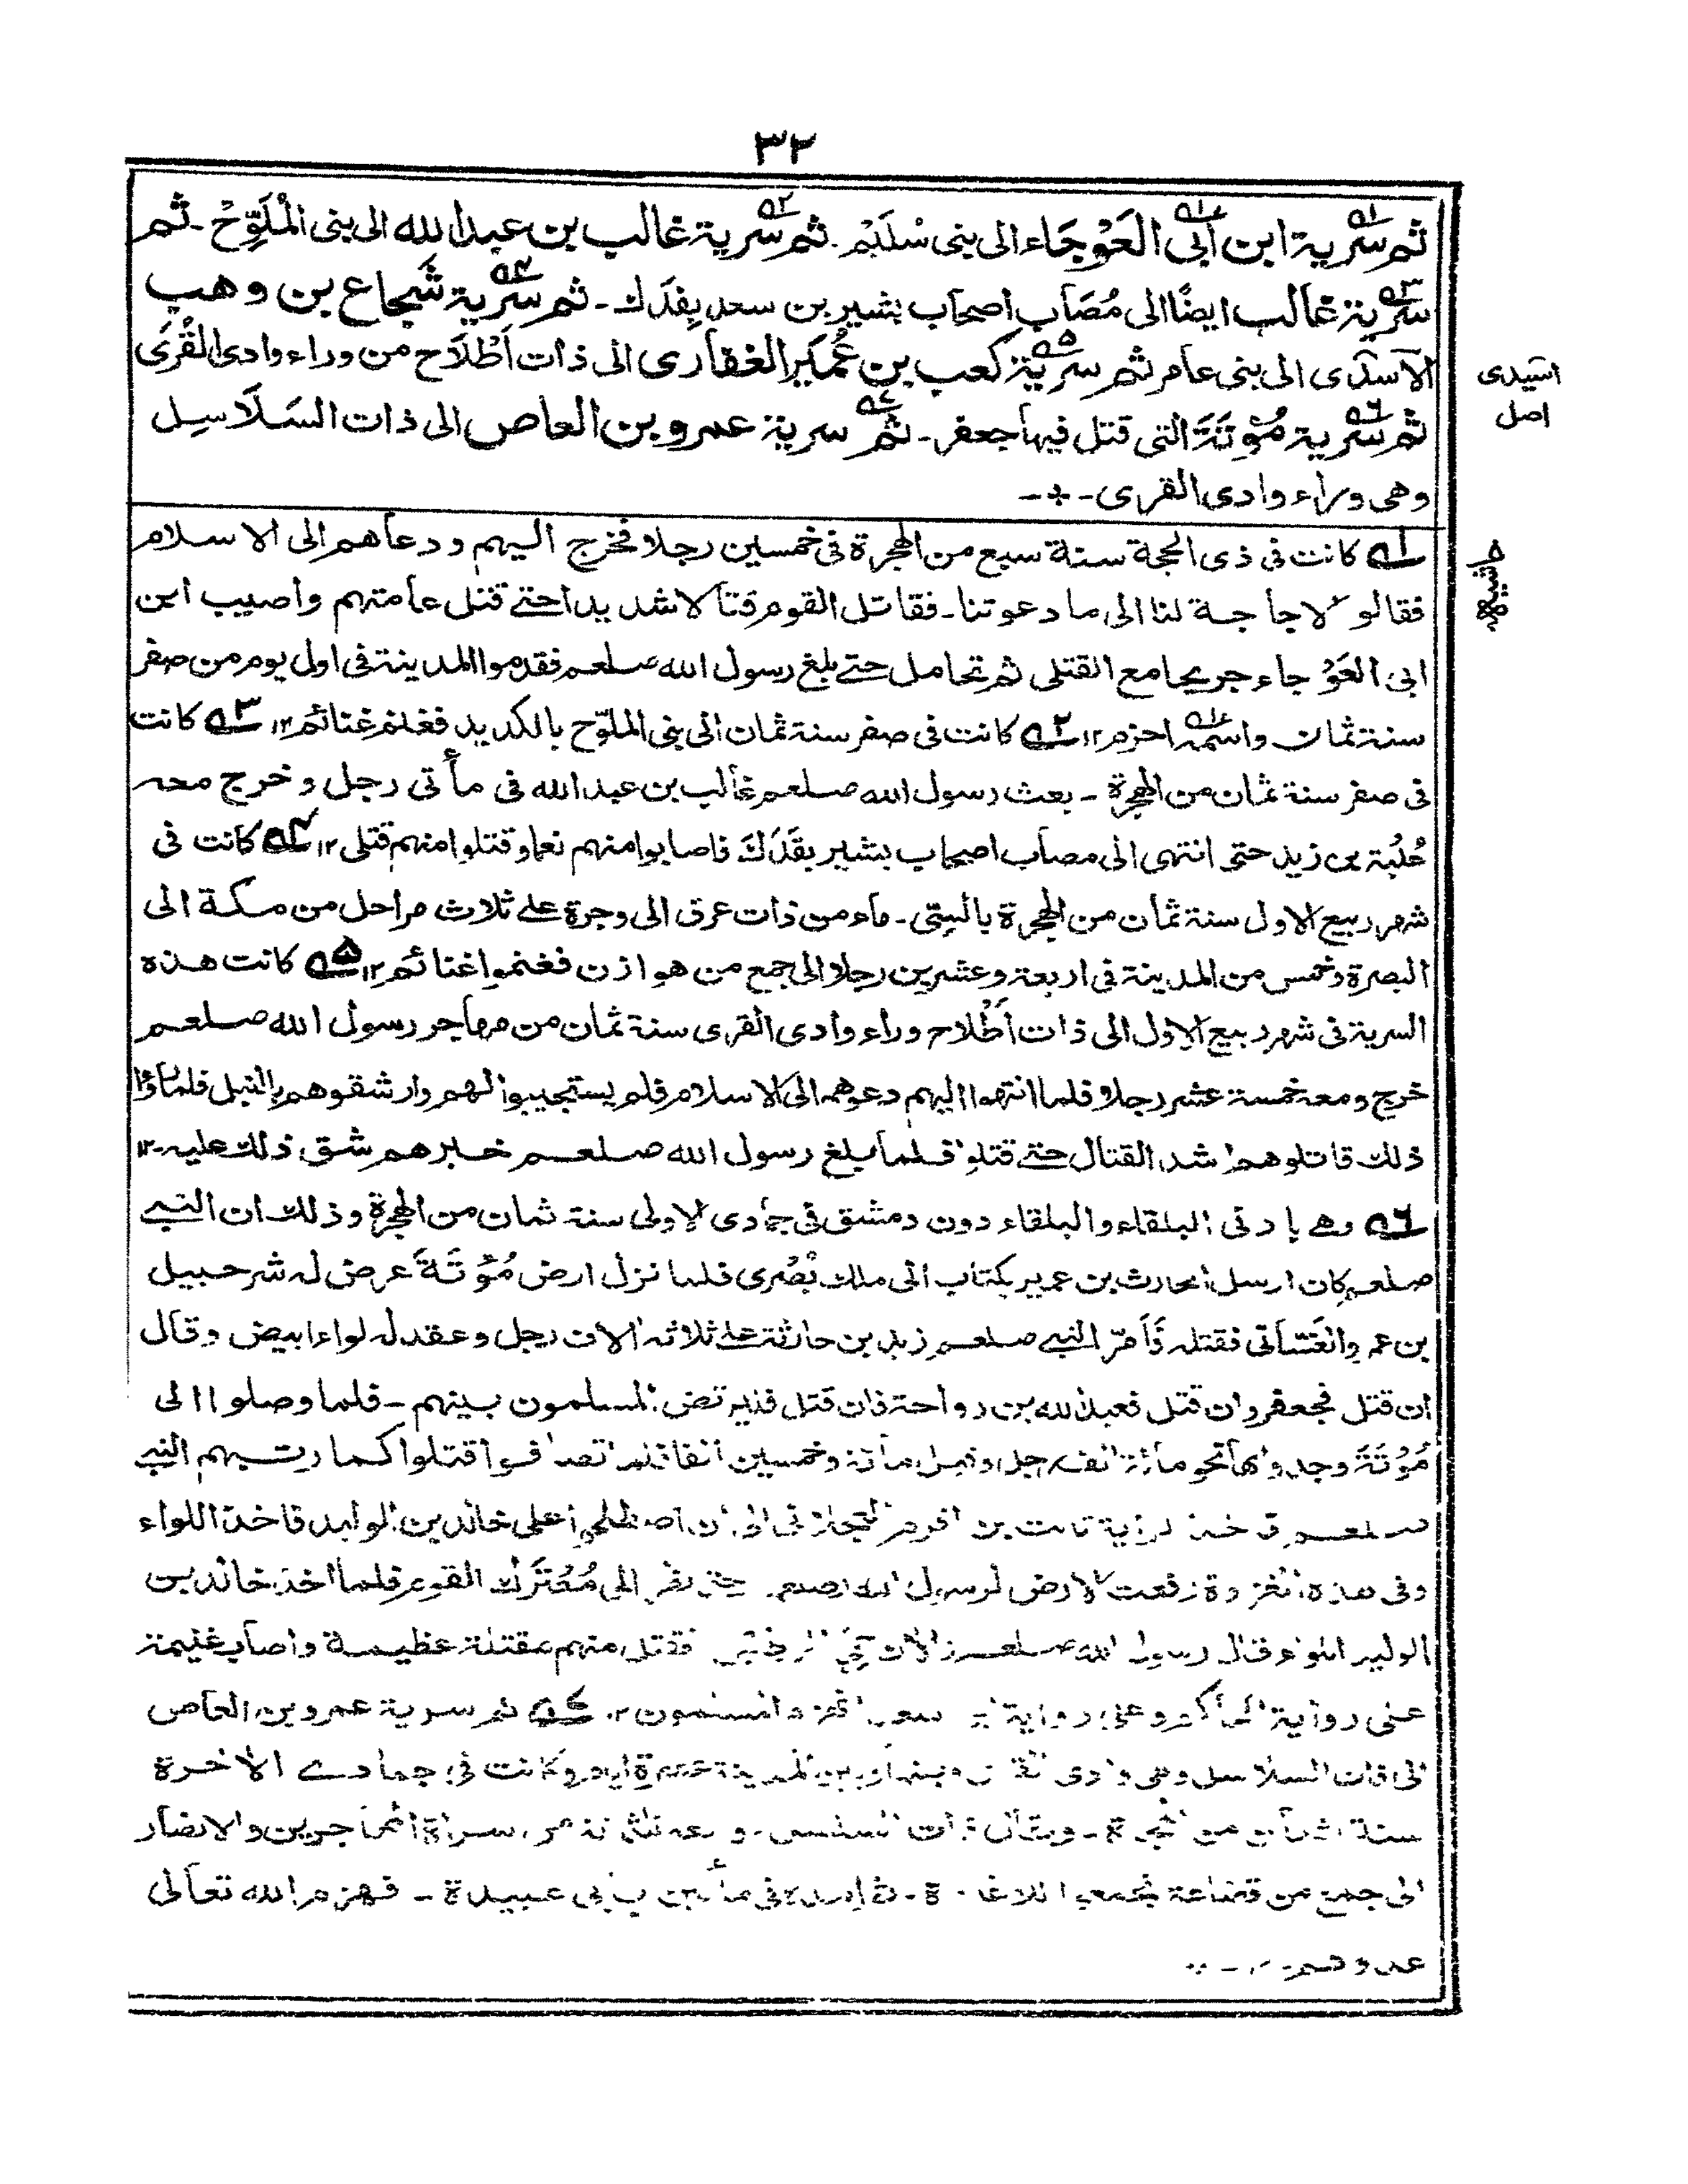 ٣٢
ثم سرية ابن ابى العَوْجَاء الى بنى سُلَيْم ـ ثم سرية غالب بن عبد الله الى بنى المُلَوِّحْ ـ ثم
سرية غالب ايضًا الى مُصَاب اصحاب بشير بن سعد بِفَدَك ـ ثم سرية شُجاع بن وهب
الاسدى الى بنى عامر ثم سرية كعب بن عُمَيْر الغفارى الى ذات اَطْلَاح من وراء وادى القُرَى
ثم سرية مُؤتَة التى قتل فيها جعفر ـ ثم سرية عمرو بن العاص الى ذات السَلَاسِل
وهى وراء وادى القرى ـ
اسيدى
اصل
حاشية
١ه كانت فى ذى الحجة سنة سبع من الهجرة فى خمسين رجلا فخرج اليهم ودعاهم الى الاسلام
فقالو لا حاجة لنا الى ما دعوتنا ـ فقاتل القوم قتالا شديدا حتے قتل عامتهم واصيب ابن
ابى العَوْجاء جريحا مع القتلى ثم تحامل حتے بلغ رسول الله صلعم فقدموا المدينة فى اول يوم من صفر
سنة ثمان واسمه احزم ١٢ ٢ه كانت فى صفر سنة ثمان الى بنى الملوّح بالكديد فغنم غنائم ١٢ ٣ه كانت
فى صفر سنة ثمان من الهجرة ـ بعث رسول الله صلعم غالب بن عبد الله فى مأتى رجل وخرج معه
عُلْبة بن زيد حتى انتهى الى مصاب اصحاب بشير بفَدَكَ فاصابوا منهم نعما وقتلوا منهم قتلى ١٢ ٤ه كانت فى
شهر ربيع الاول سنة ثمان من الهجرة بالسِّىّ ـ ماء من ذات عرق الى وجرة علے ثلاث مراحل من مكة الى
البصرة وخمس من المدينة فى اربعة وعشرين رجلا الى جمع من هوازن فغنموا غنائم ١٢ ٥ه كانت هذه
السرية فى شهر ربيع الاول الى ذات اَطْلاح وراء وادى القرى سنة ثمان من مهاجر رسول الله صلعم
خرج ومعه خمسة عشر رجلا فلما انتهوا اليهم دعوهم الى الاسلام فلم يستجيبوا لهم وارشقوهم بالنبل فلما رأوا
ذلك قاتلوهم اشد القتال حتے قتلوا فلما بلغ رسول الله صلعم خبرهم شق ذلك عليه ـ ١٢
٦ه وهے بادنى البلقاء والبلقاء دون دمشق فى جمادى الاولى سنة ثمان من الهجرة وذلك ان النبے
صلعم كان ارسل الحارث بن عمير بكتاب الى ملك بُصْرى فلما نزل ارض مُؤْتَةَ عرض له شرحبيل
بن عمرو الغَسّانى فقتله فَاَمّر النبے صلعم زيد بن حارثة علے ثلاثة الاف رجل وعقد له لواء ابيض وقال
ان قتل فجعفر وان قتل فعبد الله بن رواحة فان قتل فليرتض المسلمون بينهم ـ فلما وصلوا الى
مُؤْتَةَ وجدوا بها نحو مائة الف رجل او قيل مائة وخمسين الفا فلما تصافوا اقتلوا كما رتبهم النبے
صلعم فاخذ الراية ثابت بن اقرم العجلانى الى ان اصطلحوا على خالد بن الوليد فاخذ اللواء
وفى هذه الغزوة رفعت الارض لرسول الله صلعم حتى نظر الى مُعْتَرَك القوم فلما اخذ خالد بن
الوليد اللواء قال رسول الله صلعم الآن حَمِىَ الوطيس فقتل منهم مقتلة عظيمة واصاب غنيمة
على رواية الحاكم وعلى رواية ابن سعد انهزم المسلمون ١٢ ٧ه ثم سرية عمرو بن العاص
الى ذات السلاسل وهى وادى القرى وبينها وبين المدينة عشرة ايام وكانت فى جمادے الاخرة
سنة ثمان من الهجرة ـ ويقال ذات السلسل ـ ومعه ثلثمائة من سراة المهاجرين والانصار
الى جمع من قضاعة تجمعوا للاغارة ـ ثم امده فى مأتين بابى عبيدة ـ فهزم الله تعالى
عدوهم ١٢ ـ